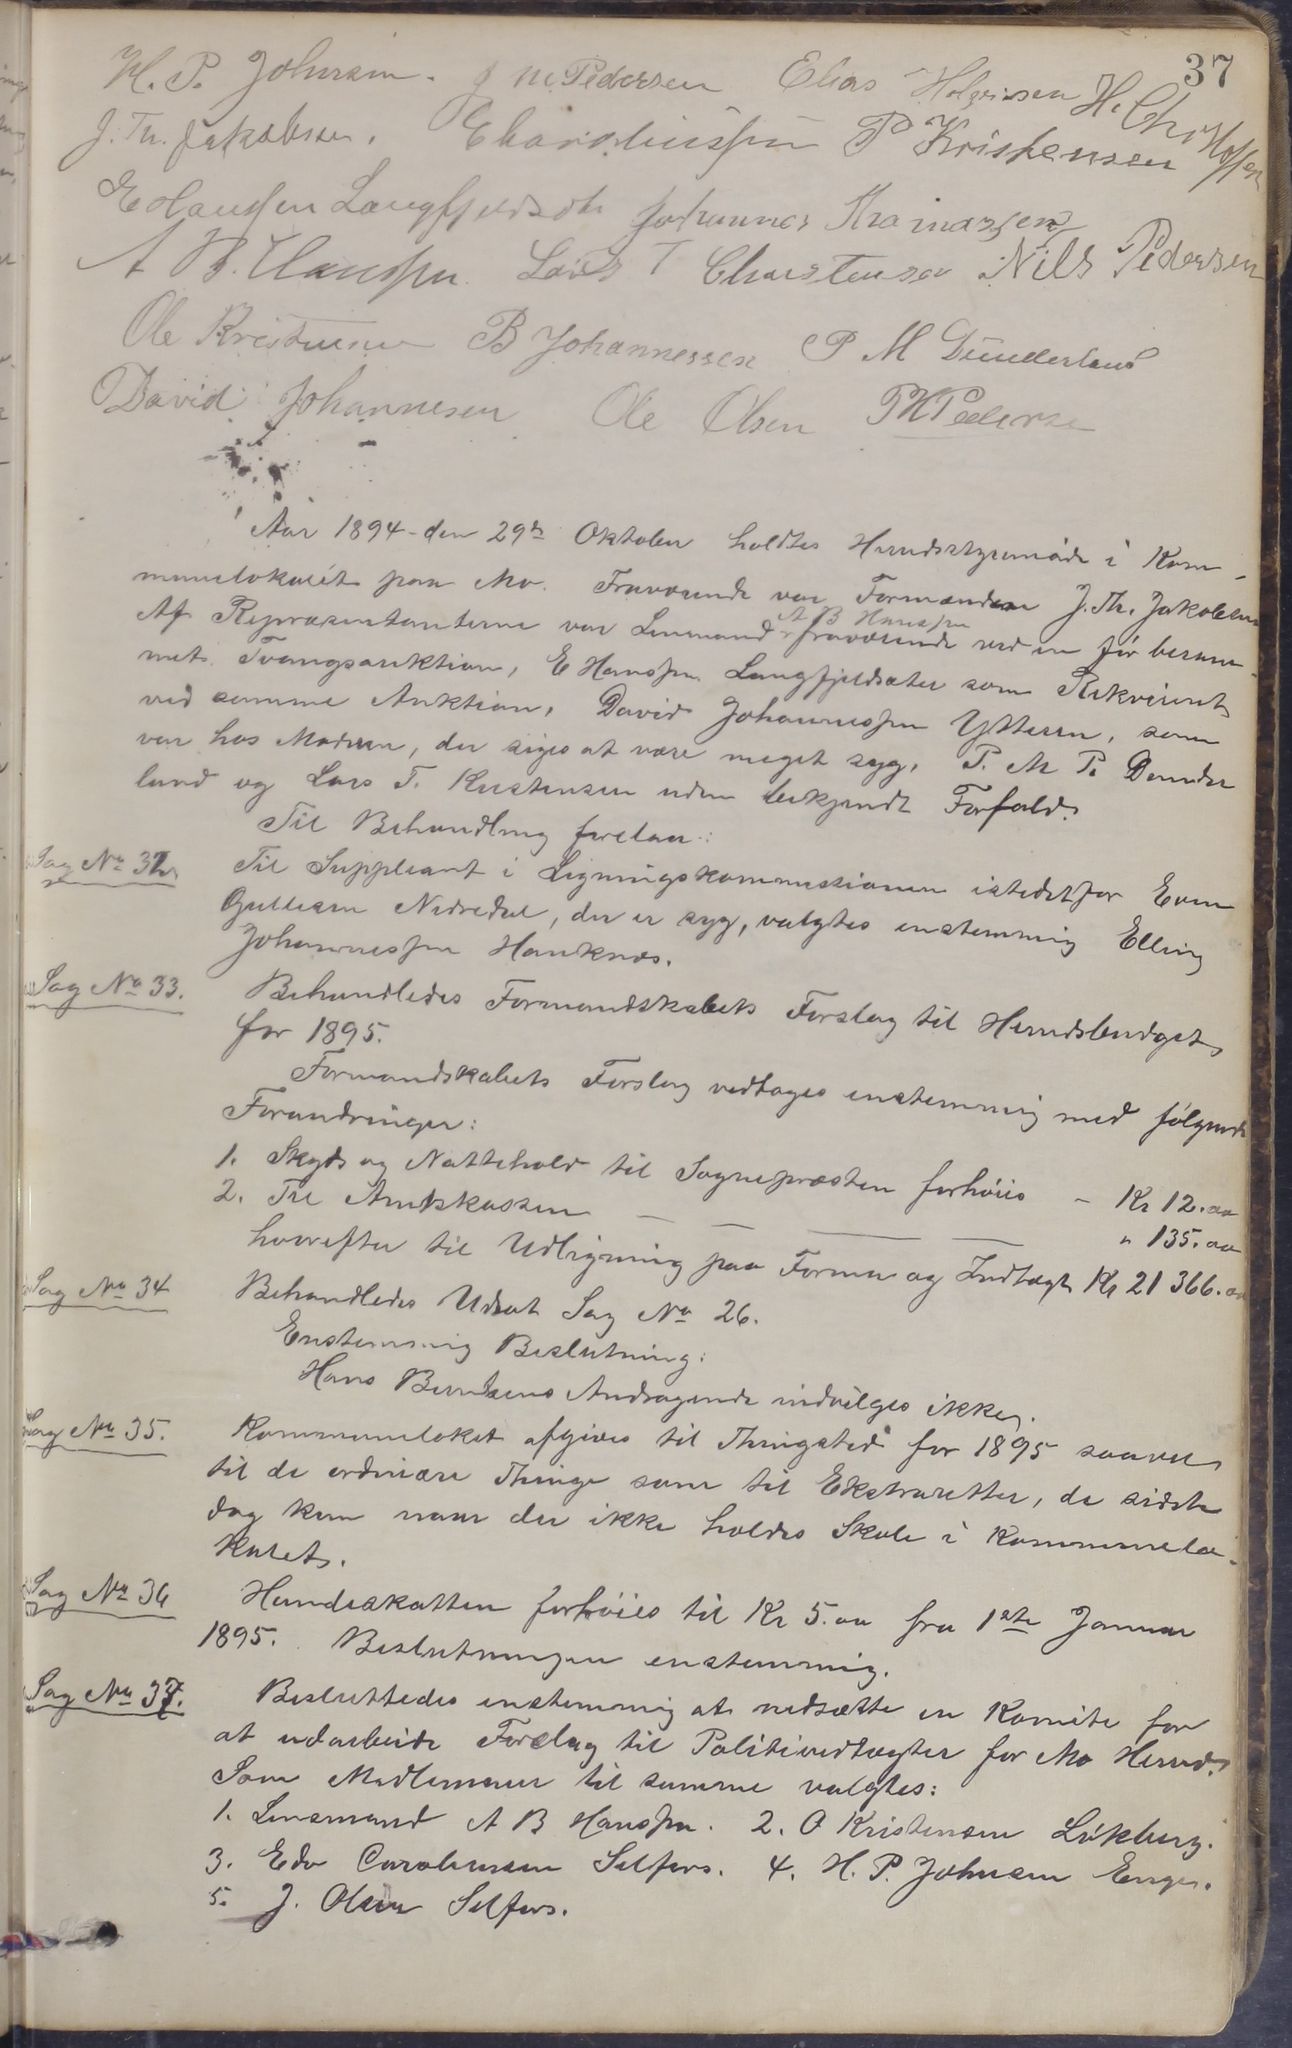 37
H. P. Johnsen. J M Pedersen Elias Helgesen H. Christoffersen
J. Th. Jakobsen. E Karoliussen P Kristensen
E Hanssen Langfjeldsæter Johannes Thomassen
A B. Hanssen Lars T Christensen Nils Pedersen
Ole Kristensen B Johannessen P M Dunderland
David Johannesen Ole Olsen P H Pedersen
Aar 1894 den 29de Oktober holdtes Herredsstyremøde i Kom-
munelokalet paa Mo. Fraværende var Formanden J. Th. Jakobsen
A B Hanssen
Af Repræsentanterne var Lensmand fraværende ved en før beram-
met Tvangsauktion, E Hanssen Langfjeldsæter som Rekvirent
ved samme Auktion, David Johannessen Ytteren, som
var hos Moderen, der siges at være meget syg, P. M P. Dunder
land og Lars T. Kristensen uden bekjendt Forfald.
Til Behandling forelaa:
Sag No 32. Til Suppleant i Ligningskommissionen istedetfor Even
Gullesen Nedredal, der er syg, valgtes enstemmig Elling
Johannessen Hauknes.
Sag No 33. Behandledes Formandskabets Forslag til Herredsbudget
for 1895.
Formandskabets Forslag vedtages enstemmig med følgende
Forandringer:
1. Skyds og Nattehold til Sognepræsten forhøies - Kr 12.00
2. Til Amtskassen — — — — " 135.00
hvorefter til Udligning paa Formue og Indtægt Kr 21 366.00
Sag No 34 Behandledes Udsat Sag No 26.
Enstemmig Beslutning:
Hans Berntsens Andragende indvilges ikke.
Sag No 35. Kommunelokalet afgives til Thingsted for 1895 saavel
til de ordinære Thinge som til Ekstraretter, de sidste
dog kun naar der ikke holdes Skole i Kommunelo-
kalet.
Sag No 36 Hundeskatten forhøies til Kr 5.00 fra 1ste Januar
1895. Beslutningen enstemmig.
Sag No 37. Besluttedes enstemmig at nedsætte en Komite for
at udarbeide Forslag til Politivedtægter for Mo Herred.
Som Medlemmer til samme valgtes:
1. Lensmand A B Hanssen. 2. O Kristensen
3. Edv Caroliussen Selfors. 4. H. P. Johnsen Enge.
5. J. Olsen Selfors.